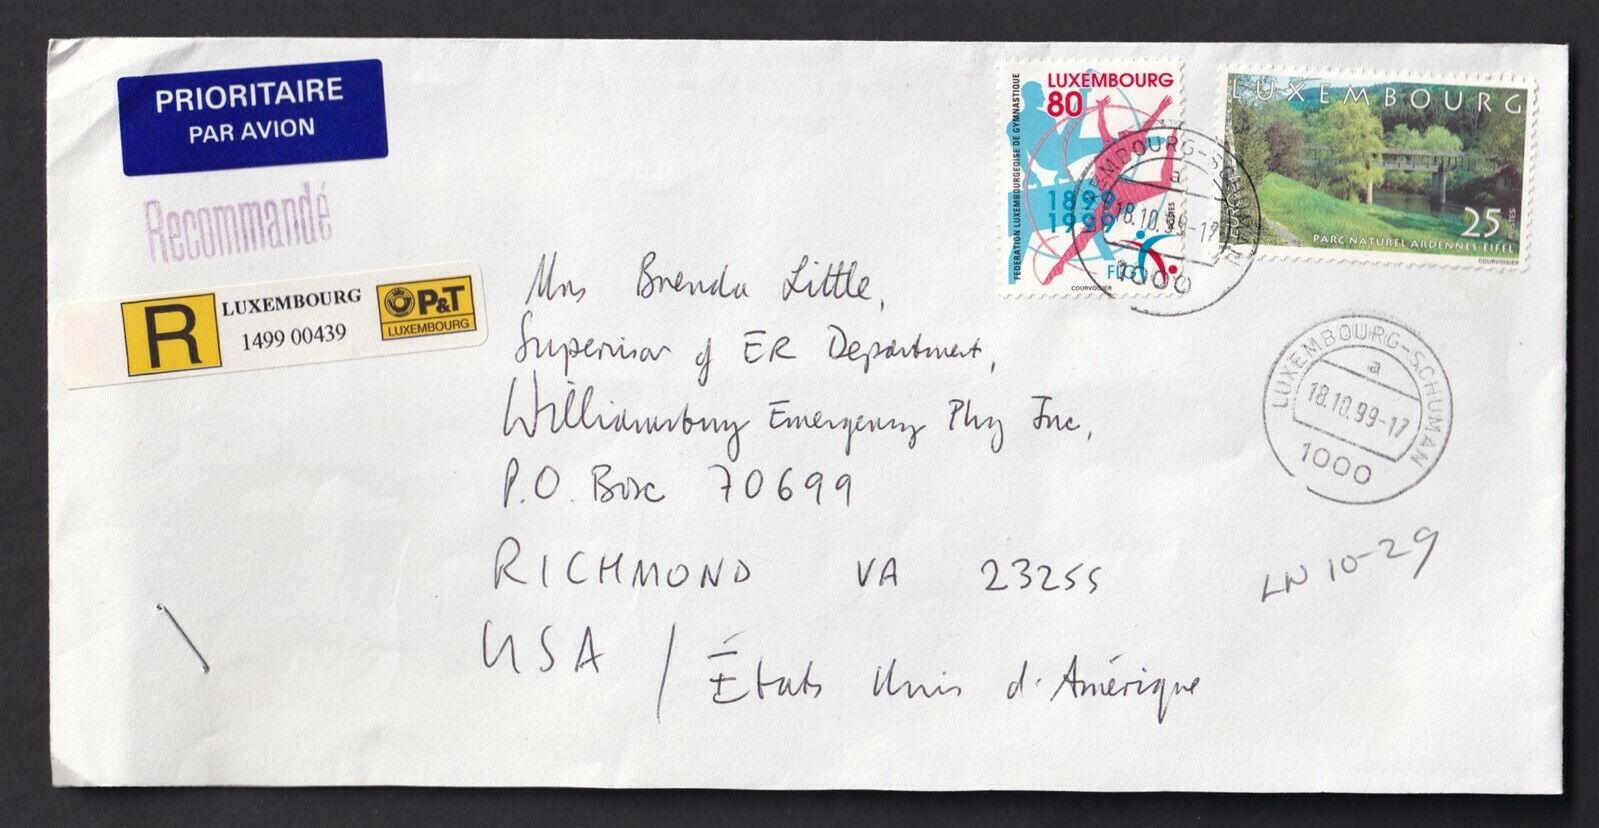 PRIORITAIRE
PAR AVION
Recommandé
R
LUXEMBOURG
1499 00439
P&T
LUXEMBOURG
FEDERATION LUXEMBOURGEOISE DE GYMNASTIQUE
LUXEMBOURG
80
1899
1999
POSTES
FLGYM
COURVOISIER
LUXEMBOURG
25
POSTES
PARC NATUREL ARDENNES-EIFEL
COURVOISIER
LUXEMBOURG-SCHUMAN
a
18.10.99-17
1000
LUXEMBOURG-SCHUMAN
a
18.10.99-17
1000
Mrs Brenda Little,
Supervisor of ER Department,
Williamsburg Emergency Phy Inc,
P.O. Box 70699
RICHMOND VA 23255
USA / États Unis d'Amérique
LN 10-29